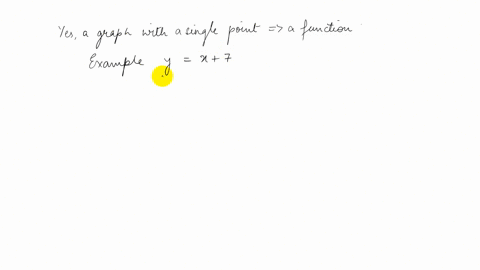 Yes, a graph with a single point => a function
Example y = x + 7